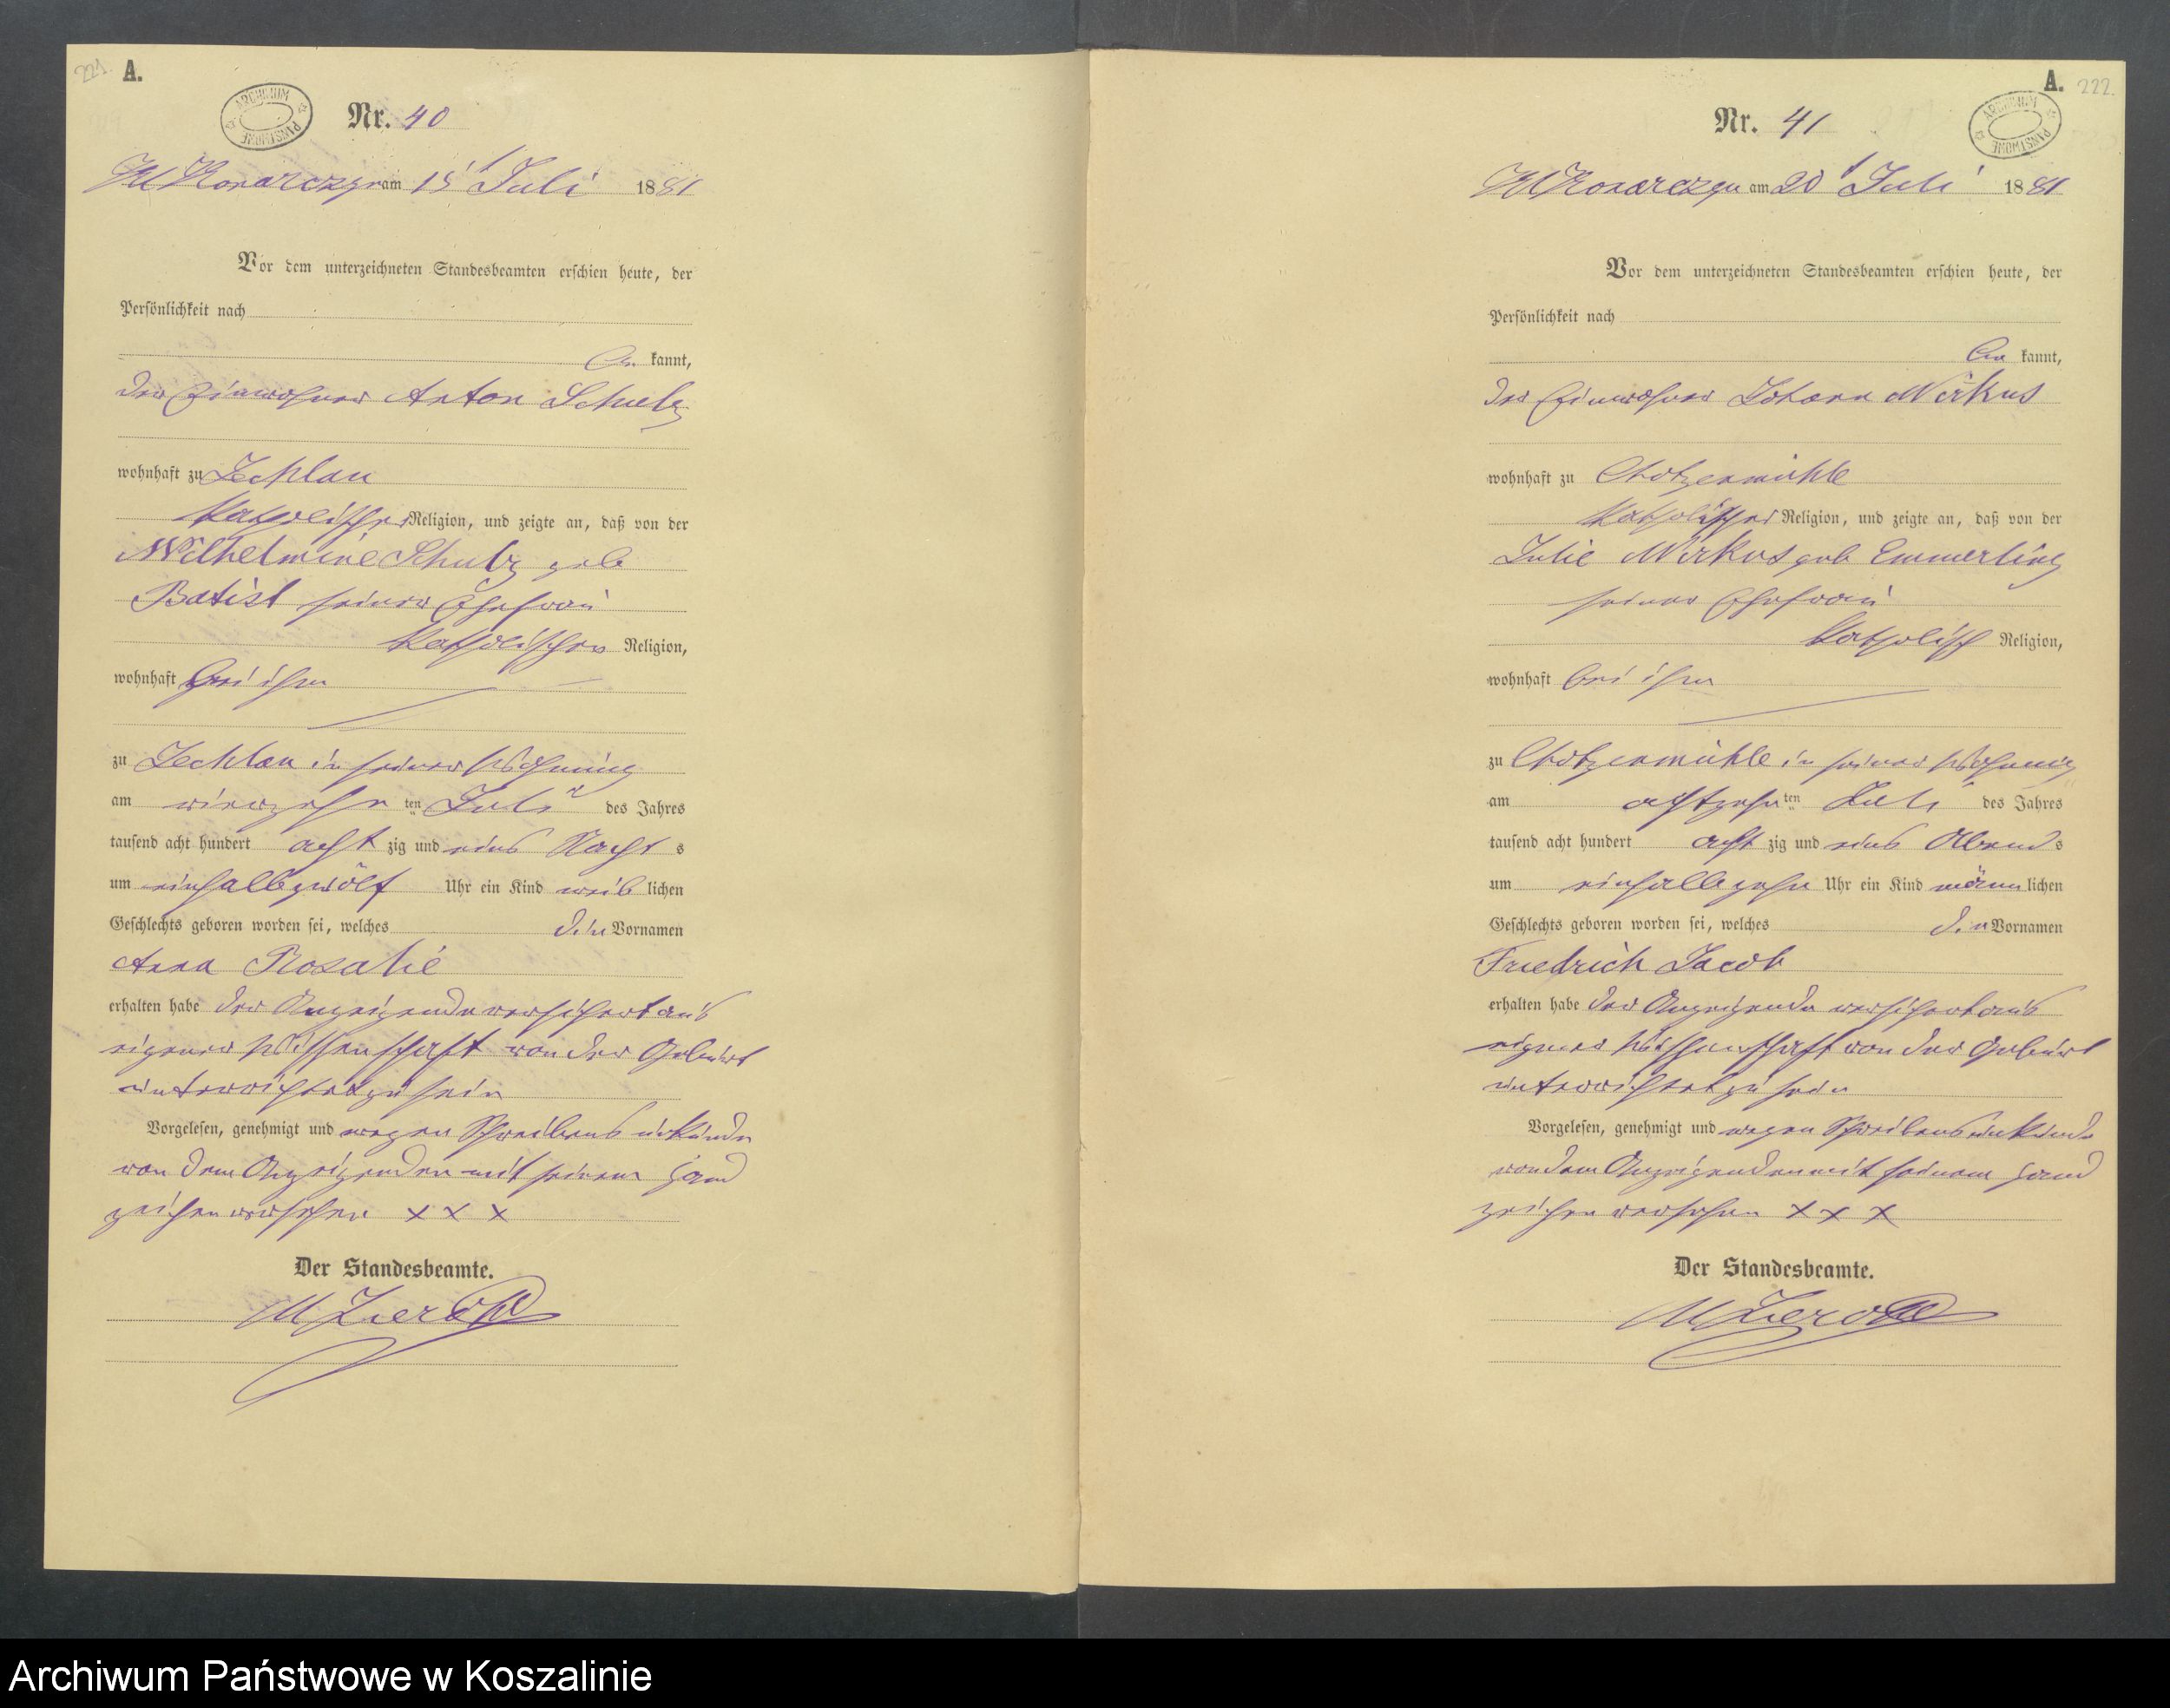 221.
A.
ARCHIWUM PAŃSTWOWE
Nr. 40
Konarczyn am 15 Juli 1881
Vor dem unterzeichneten Standesbeamten erschien heute, der
Persönlichkeit nach
kannt,
der Einwohner Anton Schulz
wohnhaft zu Zechlau
katholischer Religion, und zeigte an, daß von der
Wilhelmine Schulz geb
Batist seiner Ehefrau
katholischen Religion,
wohnhaft bei ihm
zu Zechlau in seiner Wohnung
am vierzehn ten Juli des Jahres
tausend acht hundert acht zig und eins Nacht s
um einhalb zwölf Uhr ein Kind weib lichen
Geschlechts geboren worden sei, welches die Vornamen
Anna Rosalie
erhalten habe der Anzeigende versichert aus
eigener Wissenschaft von der Geburt
unterrichtet zu sein
Vorgelesen, genehmigt und wegen Schreibensunkunde
von dem Anzeigenden mit seinem Hand
zeichen versehen x x x
Der Standesbeamte.
A.
222.
ARCHIWUM PAŃSTWOWE
Nr. 41
Konarczyn am 20 Juli 1881
Vor dem unterzeichneten Standesbeamten erschien heute, der
Persönlichkeit nach
kannt,
der Einwohner Johann Wirkus
wohnhaft zu Chotzenmühle
katholischer Religion, und zeigte an, daß von der
Julie Wirkus geb Emmerling
seiner Ehefrau
katholisch Religion,
wohnhaft bei ihm
zu Chotzenmühle in seiner Wohnung
am achtzehn ten Juli des Jahres
tausend acht hundert acht zig und eins Abend s
um einhalb zehn Uhr ein Kind männ lichen
Geschlechts geboren worden sei, welches die Vornamen
Friedrich Jacob
erhalten habe der Anzeigende versichert aus
eigener Wissenschaft von der Geburt
unterrichtet zu sein
Vorgelesen, genehmigt und wegen Schreibensunkunde
von dem Anzeigenden mit seinem Hand
zeichen versehen x x x
Der Standesbeamte.
Archiwum Państwowe w Koszalinie